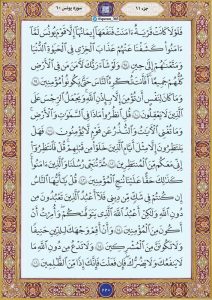 جزء ١١
سورة يونس ١٠
فَلَوْلَا كَانَتْ قَرْيَةٌ ءَامَنَتْ فَنَفَعَهَآ إِيمَٰنُهَآ إِلَّا قَوْمَ يُونُسَ لَمَّآ
ءَامَنُوا۟ كَشَفْنَا عَنْهُمْ عَذَابَ ٱلْخِزْىِ فِى ٱلْحَيَوٰةِ ٱلدُّنْيَا
وَمَتَّعْنَٰهُمْ إِلَىٰ حِينٍ ٩٨ وَلَوْ شَآءَ رَبُّكَ لَءَامَنَ مَن فِى ٱلْأَرْضِ
كُلُّهُمْ جَمِيعًا ۚ أَفَأَنتَ تُكْرِهُ ٱلنَّاسَ حَتَّىٰ يَكُونُوا۟ مُؤْمِنِينَ ٩٩
وَمَا كَانَ لِنَفْسٍ أَن تُؤْمِنَ إِلَّا بِإِذْنِ ٱللَّهِ ۚ وَيَجْعَلُ ٱلرِّجْسَ عَلَى
ٱلَّذِينَ لَا يَعْقِلُونَ ١٠٠ قُلِ ٱنظُرُوا۟ مَاذَا فِى ٱلسَّمَٰوَٰتِ وَٱلْأَرْضِ ۚ
وَمَا تُغْنِى ٱلْءَايَٰتُ وَٱلنُّذُرُ عَن قَوْمٍ لَّا يُؤْمِنُونَ ١٠١ فَهَلْ
يَنتَظِرُونَ إِلَّا مِثْلَ أَيَّامِ ٱلَّذِينَ خَلَوْا۟ مِن قَبْلِهِمْ ۚ قُلْ فَٱنتَظِرُوٓا۟
إِنِّى مَعَكُم مِّنَ ٱلْمُنتَظِرِينَ ١٠٢ ثُمَّ نُنَجِّى رُسُلَنَا وَٱلَّذِينَ ءَامَنُوا۟ ۚ
كَذَٰلِكَ حَقًّا عَلَيْنَا نُنجِ ٱلْمُؤْمِنِينَ ١٠٣ قُلْ يَٰٓأَيُّهَا ٱلنَّاسُ
إِن كُنتُمْ فِى شَكٍّ مِّن دِينِى فَلَآ أَعْبُدُ ٱلَّذِينَ تَعْبُدُونَ مِن
دُونِ ٱللَّهِ وَلَٰكِنْ أَعْبُدُ ٱللَّهَ ٱلَّذِى يَتَوَفَّىٰكُمْ ۖ وَأُمِرْتُ أَنْ
أَكُونَ مِنَ ٱلْمُؤْمِنِينَ ١٠٤ وَأَنْ أَقِمْ وَجْهَكَ لِلدِّينِ حَنِيفًا
وَلَا تَكُونَنَّ مِنَ ٱلْمُشْرِكِينَ ١٠٥ وَلَا تَدْعُ مِن دُونِ ٱللَّهِ مَا
لَا يَنفَعُكَ وَلَا يَضُرُّكَ ۖ فَإِن فَعَلْتَ فَإِنَّكَ إِذًا مِّنَ ٱلظَّٰلِمِينَ ١٠٦
٢٢٠